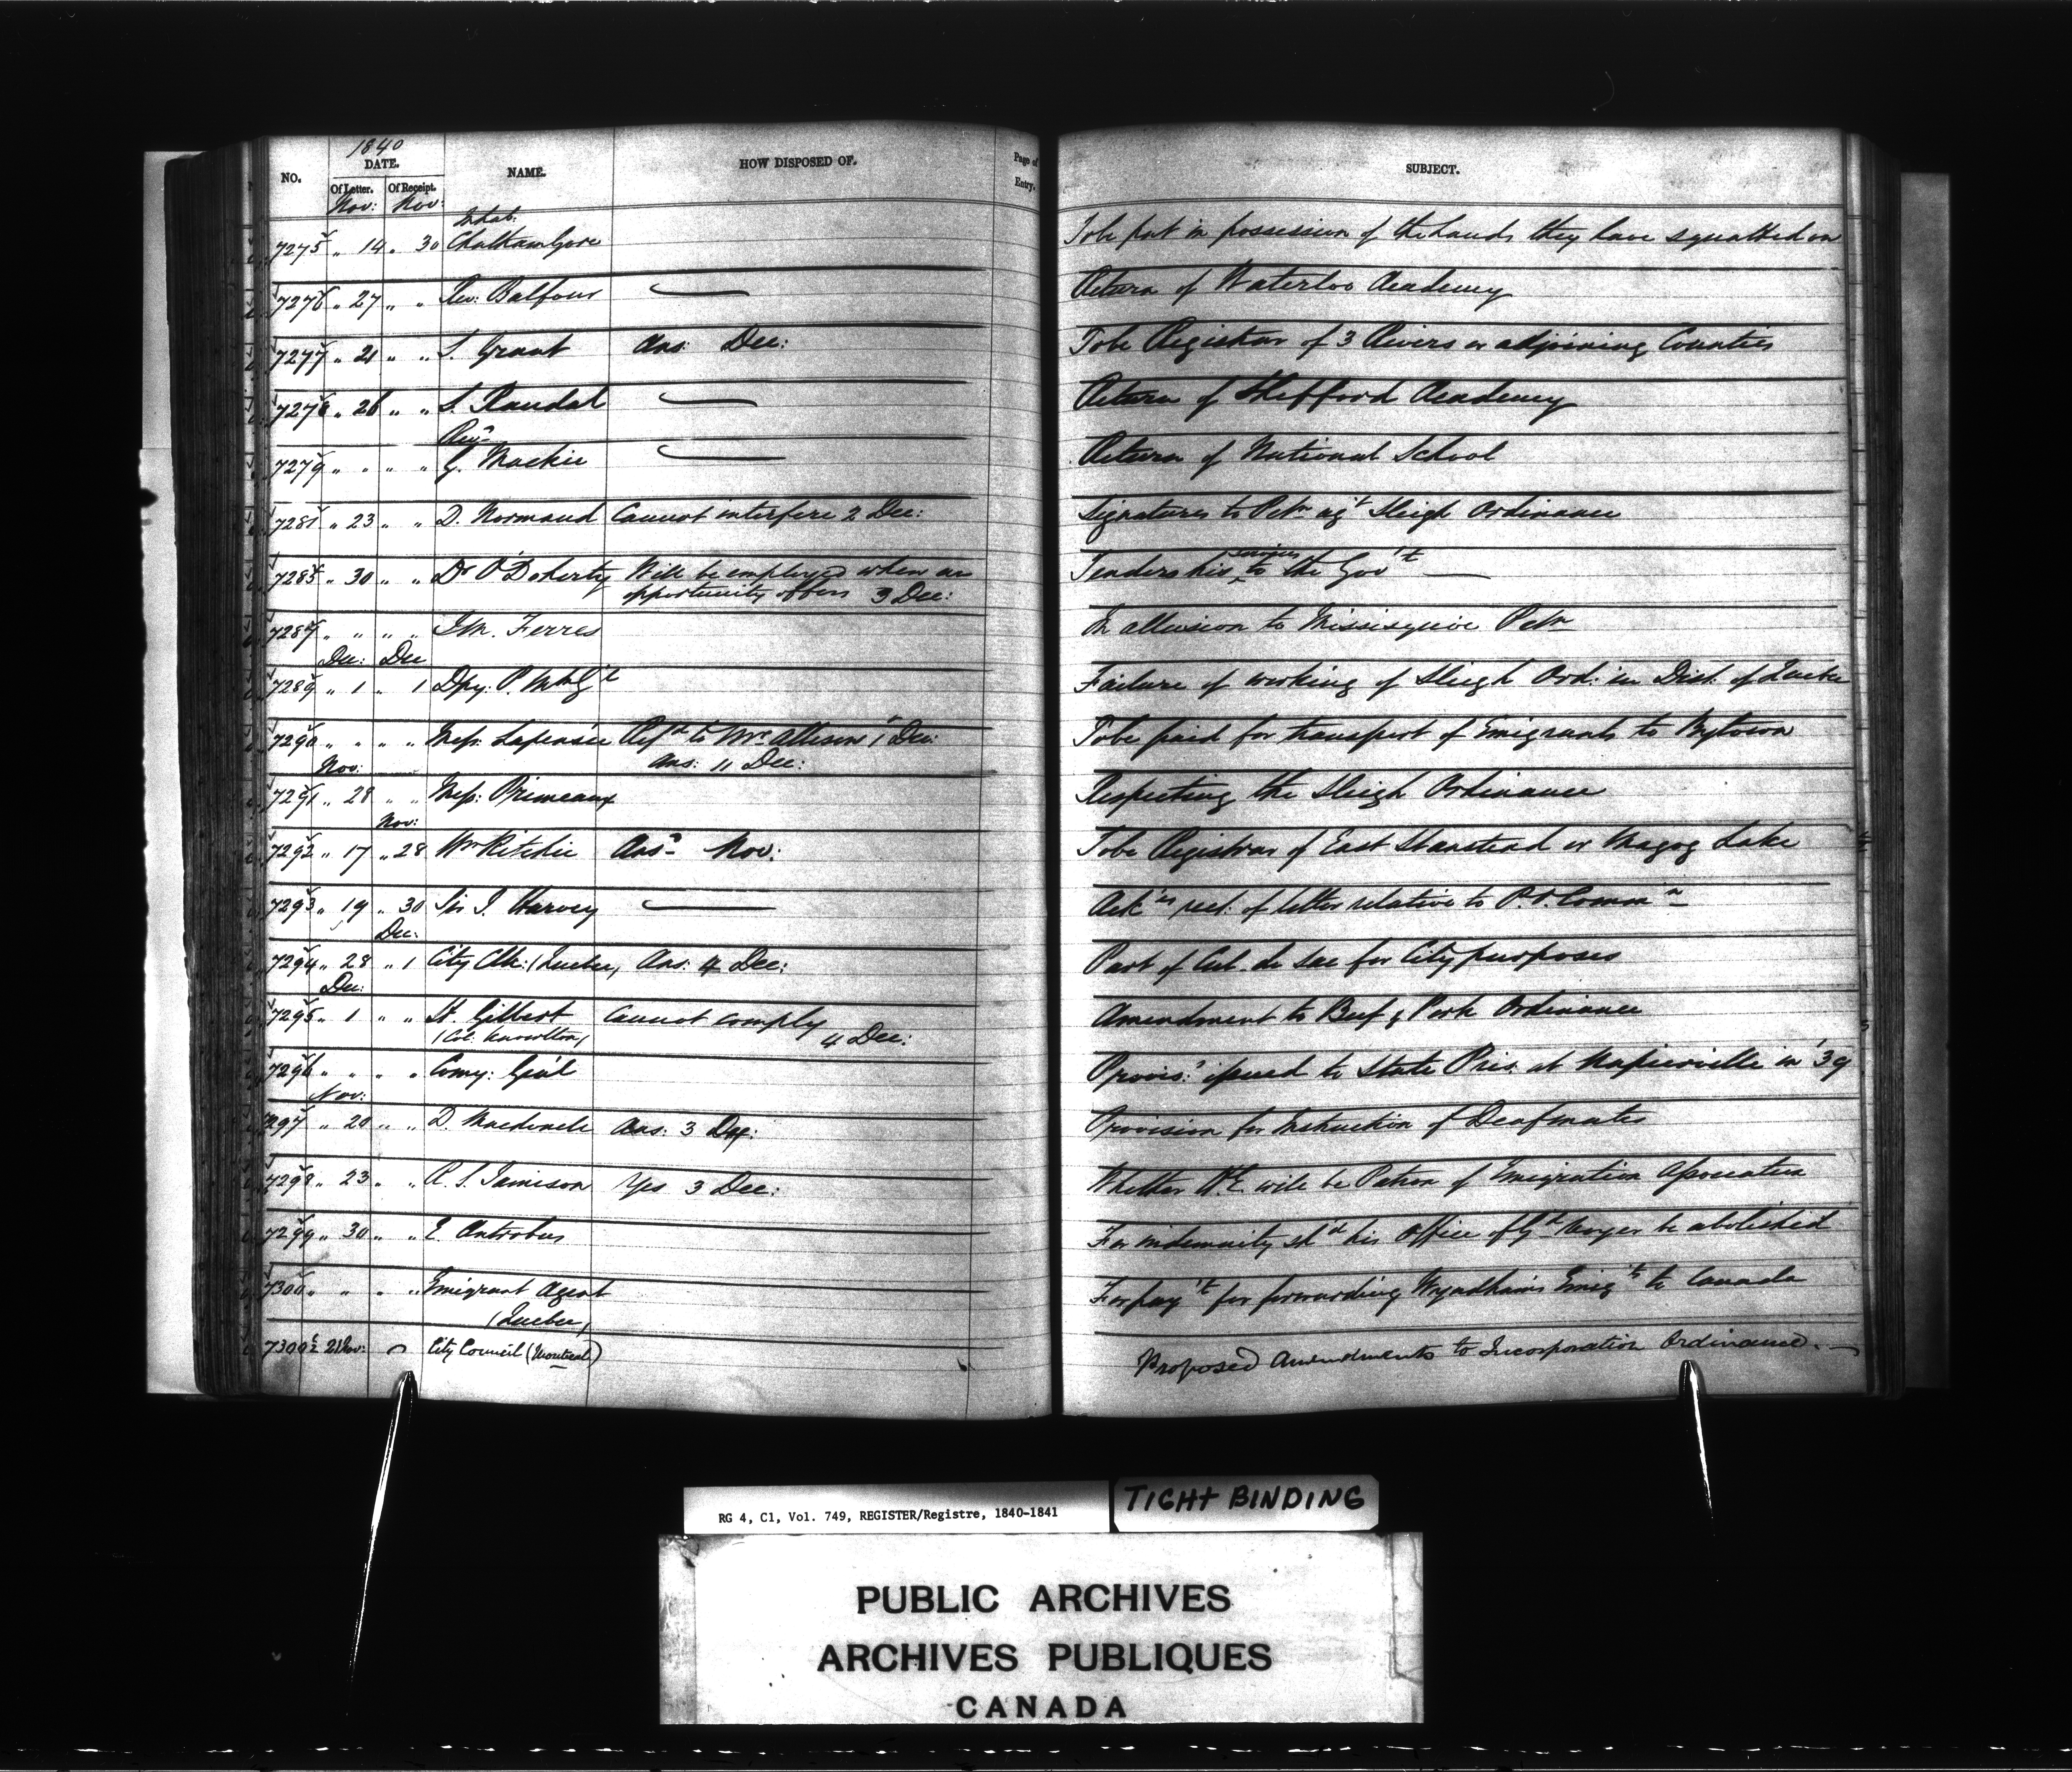 1840
NO. DATE. NAME. HOW DISPOSED OF. Page of Entry. SUBJECT.
Of Letter. Of Receipt.
Nov: Nov: Inhab:
7275 " 14 " 30 Chatham Gore To be put in possession of the Lands they have squatted on
7276 " 27 " " Rev: Balfour — Return of Waterloo Academy
7277 " 21 " " S. Grant Ans: Dec: To be Registrar of 3 Rivers or adjoining Counties
7278 " 26 " " S. Randal — Return of Shefford Academy
Revd
7279 " " " " G. Mackie — Return of National School
7281 " 23 " " D. Normand Cannot interfere 2 Dec: Signatures to Petn agt Sleigh Ordinance
7285 " 30 " " Dr O'Doherty Will be employed when an Tenders his services to the Govt —
opportunity offers 3 Dec:
7287 " " " " J.M. Ferres In allusion to Missisquoi Petn
Dec: Dec
7289 " 1 " 1 Dpy. P. Mr Gl Failure of working of Sleigh Ord: in Dist. of Quebec
7290 " " " " Messrs. Lapensée Refd to Mr. Allison 1 Dec: To be paid for transport of Emigrants to Bytown
Ans: 11 Dec:
Nov:
7291 " 28 " " Messrs: Primeaux Respecting the Sleigh Ordinance
Nov:
7292 " 17 " 28 Wm Ritchie Ansd Nov: To be Registrar of East Stanstead or Magog Lake
7293 " 19 " 30 Sir J. Harvey — Ackgs rect. of letter relative to P.O. Commn
Dec:
7294 " 28 " 1 City Clk: (Quebec) Ans: 4 Dec: Part of Cul-de Sac for City purposes
Dec:
7295 " 1 " " St. Gilbert Cannot comply 4 Dec: Amendment to Beef & Pork Ordinance
(Col: Knowlton)
7296 " " " " Comy: Genl Provis: issued to State Pris. at Napierville in '39
Nov:
7297 " 20 " " Ans: 3 Dec: Provision for Instruction of Deafmutes
7298 " 23 " " R. S. Jamison Yes 3 Dec: Whether H.E. will be Patron of Emigration Association
7299 " 30 " " E. Antrobus For indemnity shd his office of Gd Voyer be abolished
7300 " " " " Emigrant Agent For payt for forwarding Wyndham's Emigts to Canada
(Quebec)
7300½ 21 Nov: City Council (Montreal) Proposed Amendments to Incorporation Ordinance. —
RG 4, C1, Vol. 749, REGISTER/Registre, 1840-1841
TIGHT BINDING
PUBLIC ARCHIVES
ARCHIVES PUBLIQUES
CANADA